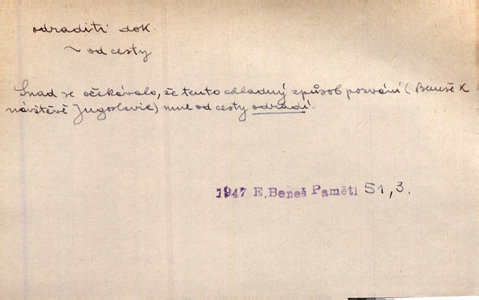 odraditi dok.
~ od cesty
Snad se očekávalo, že tento chladný způsob pozvání (Beneše k
návštěvě Jugoslavie) mne od cesty odradí.
1947 E.Beneš Paměti S1,3.